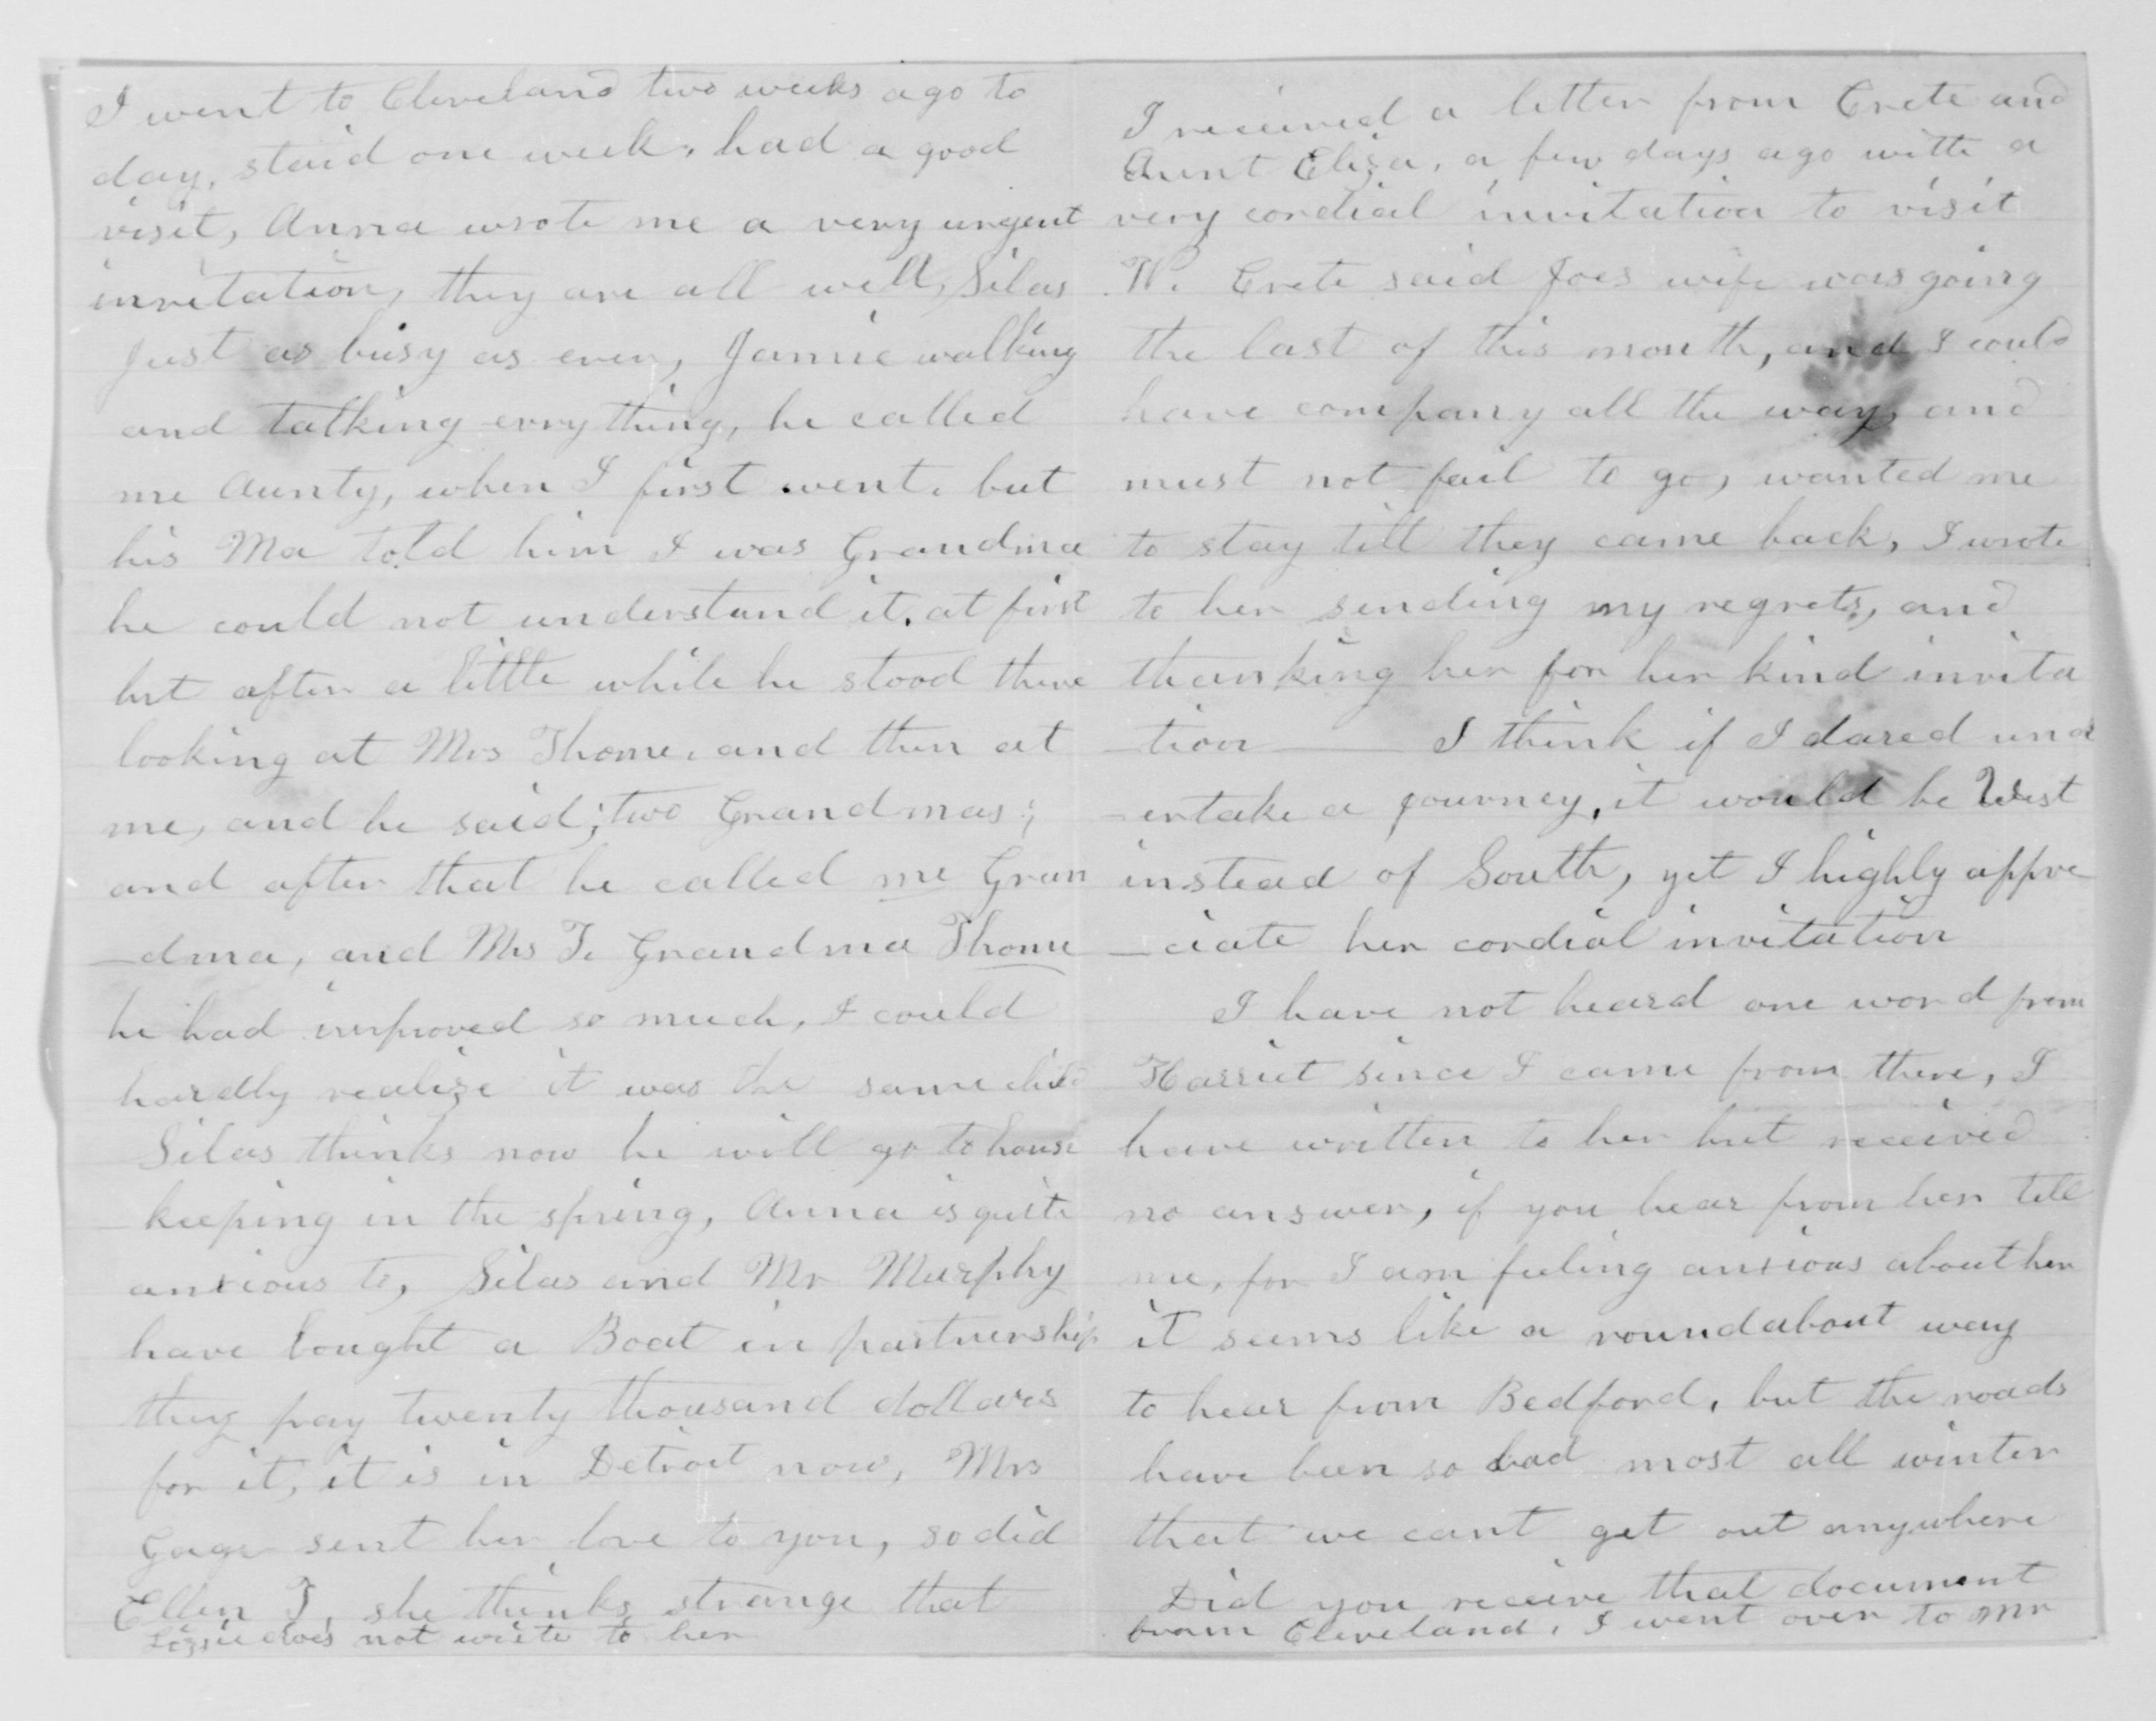 I went to Cleveland two weeks ago to
day, staid one week, had a good
visit, Anna wrote me a very urgent
invitation, they are all well, Silas
just as busy as ever, Jamie walking
and talking evrything, he called
me Aunty, when I first went, but
his Ma told him I was Grandma
he could not understand it, at first
but after a little while he stood there
looking at Mrs Thome, and then at
me, and he said; two Grandmas;
and after that he called me Gran
-dma, and Mrs T. Grandma Thome
he had improved so much, I could
hardly realize it was the same child
Silas thinks now he will go to house
-keeping in the spring, Anna is quite
anxious to, Silas and Mr Murphy
have bought a Boat in partnership
they pay twenty thousand dollars
for it, it is in Detroit now, Mrs
Gage sent her love to you, so did
Ellen T, she thinks strange that
Lizzie does not write to her
I received a letter from Crete and
Aunt Eliza, a few days ago with a
very cordial invitation to visit
W. Crete said Joes wife was going
the last of this month, and I could
have company all the way, and
must not fail to go, wanted me
to stay till they came back, I wrote
to her sending my regrets, and
thanking her for her kind invita
-tion — I think if I dared und
-ertake a journey, it would be West
instead of South, yet I highly appre
-ciate her cordial invitation
I have not heard one word from
Harriet since I came from there, I
have written to her but received
no answer, if you hear from her tell
me, for I am feeling anxious about her
it seems like a roundabout way
to hear from Bedford, but the roads
have been so bad most all winter
that we cant get out anywhere
Did you receive that document
from Cleveland, I went over to Mr